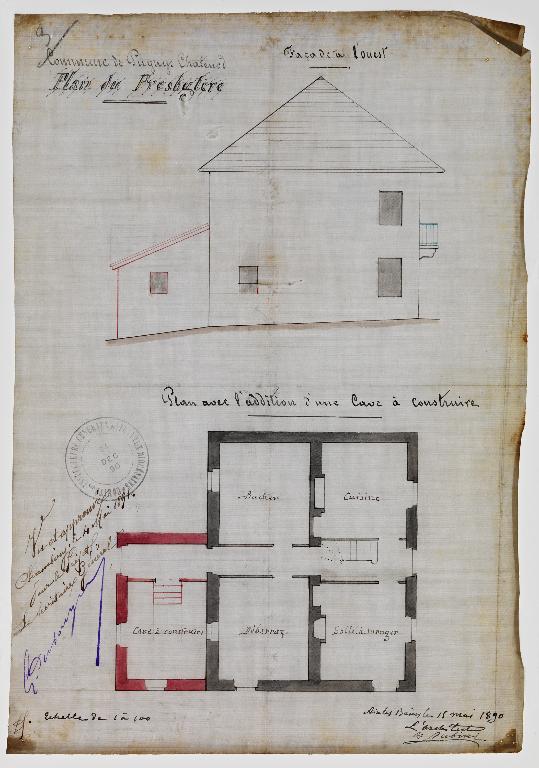 Commune de Pugny-Chatenod
Plan du Presbytère
Façade à l'ouest
Plan avec l'addition d'une Cave à construire
Bucher
Cuisine
Cave à construire
Débarras
Salle à manger
DEC
90
Vu et approuvé
Chambéry, le
Mai 189
Secrétaire Général
Echelle de 1 à 100
Aix les Bains, le 15 mai 1890
L'architecte